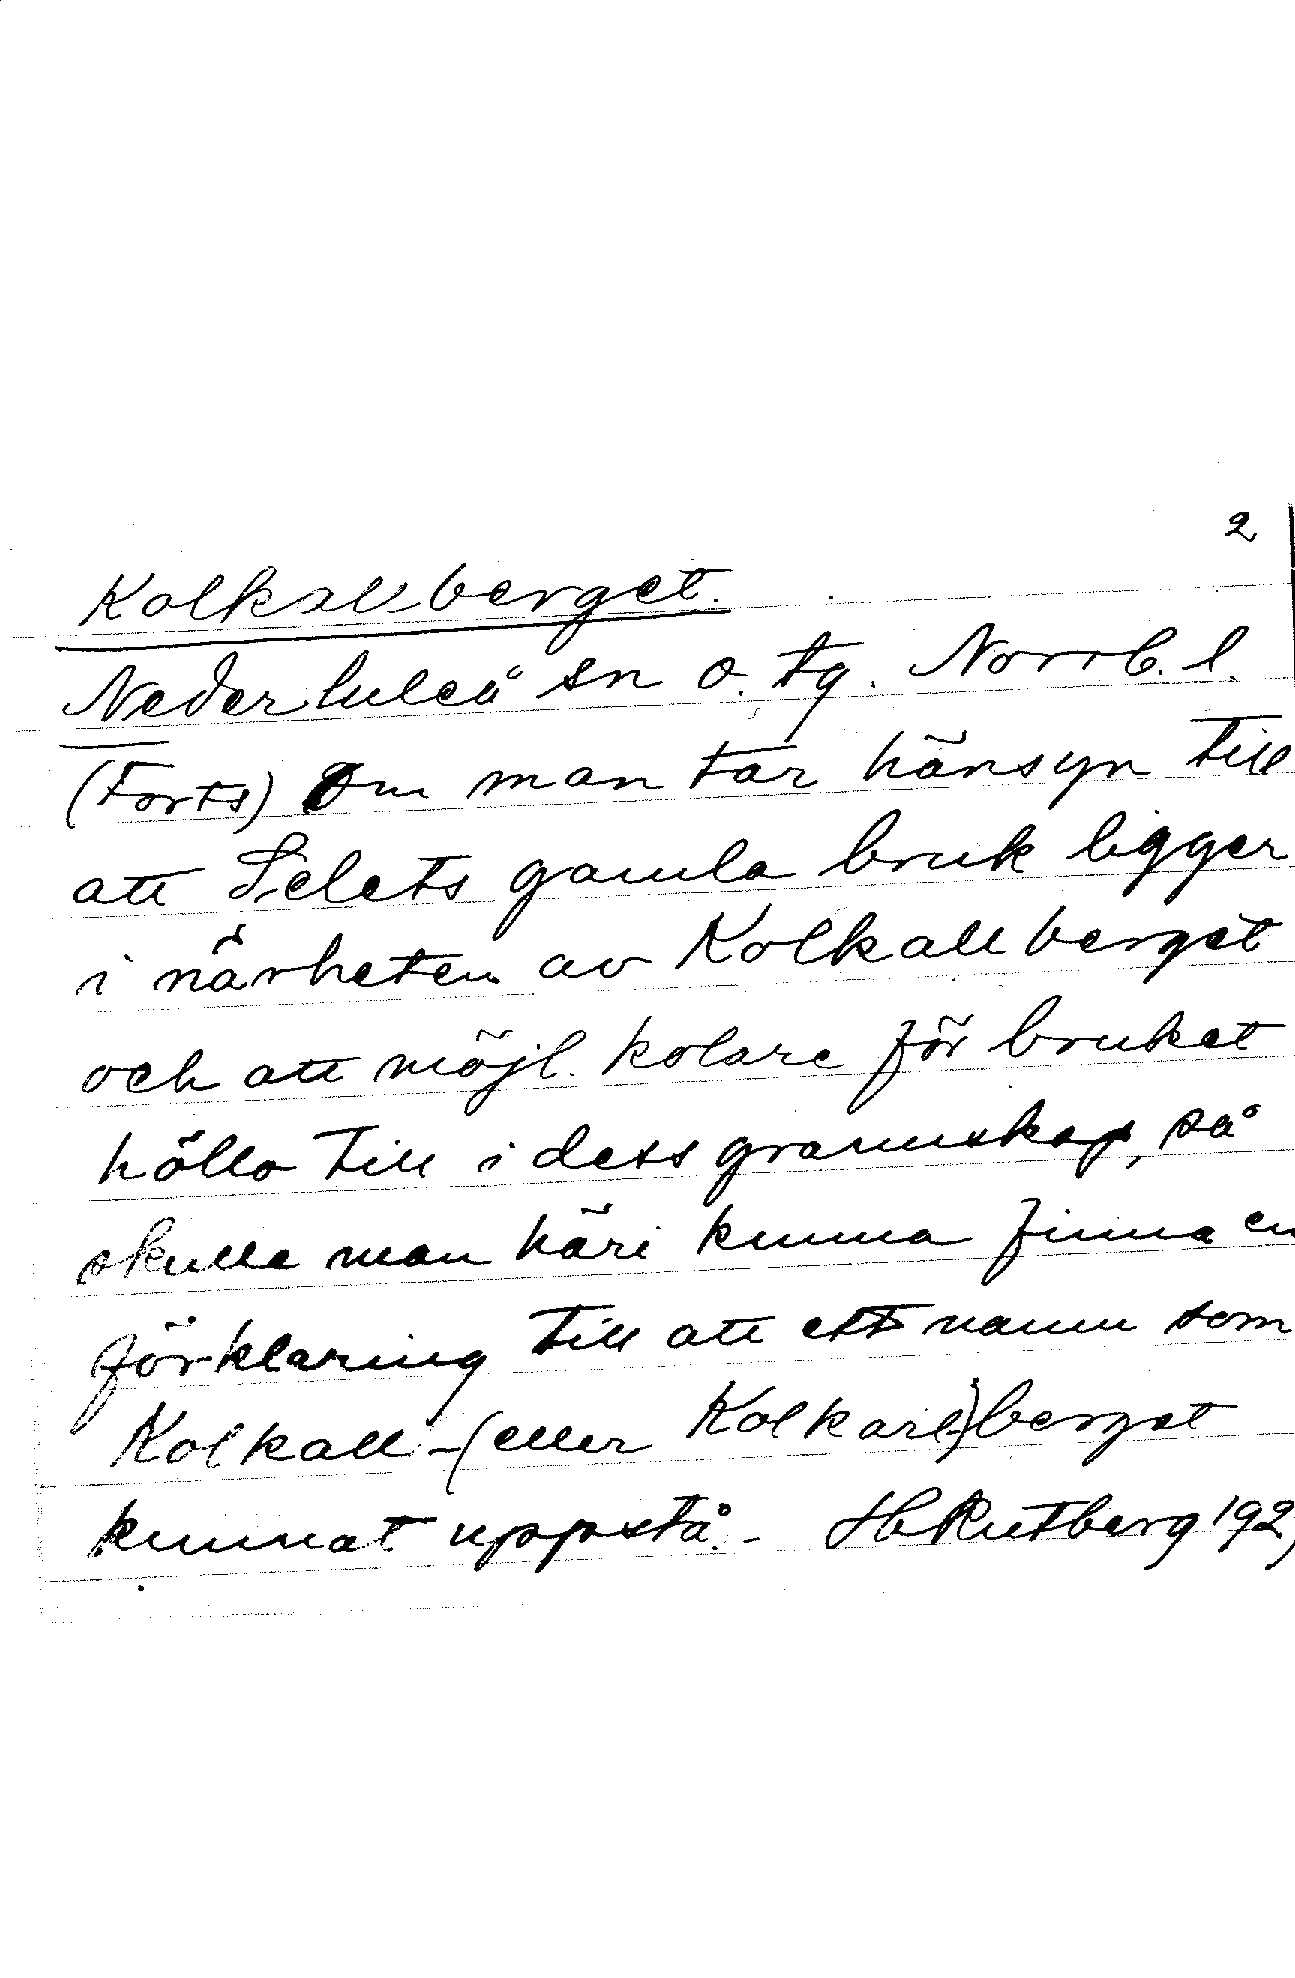 2
Kolkallberget.
Nederluleå sn o. tg. Norrb. l.
(Forts) Om man tar hänsyn till
att Selets gamla bruk ligger
i närheten av Kolkallberget
och att möjl. kolare för bruket
höllo till i dess grannskap, så
skulle man häri kunna finna en
förklaring till att ett namn som
Kolkall-(eller Kolkarl)berget
kunnat uppstå. - HRutberg 192